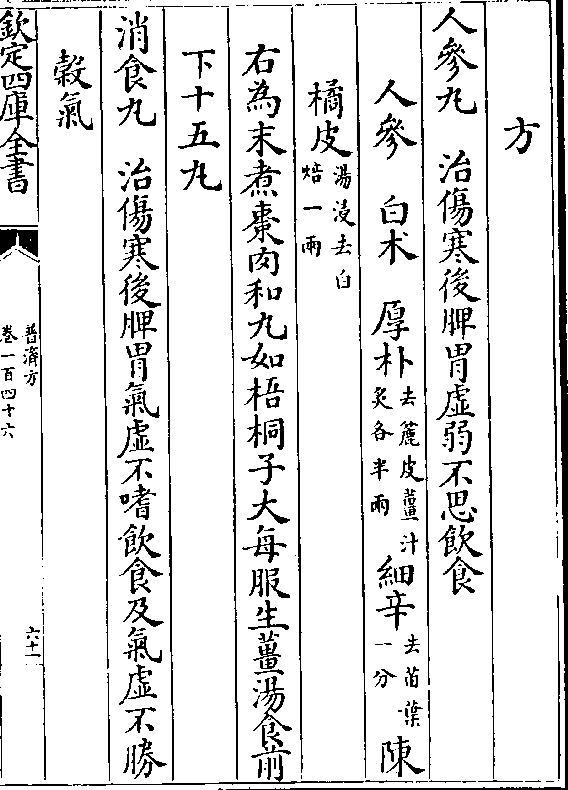 方
人參丸　治傷寒後脾胃虛弱不思飲食
人參　白朮　厚朴去麄皮薑汁炙各半兩　細辛去苗葉一分　陳
橘皮湯浸去白焙一兩
右為末煮棗肉和丸如梧桐子大每服生薑湯食前
下十五丸
消食丸　治傷寒後脾胃氣虛不嗜飲食及氣虛不勝
穀氣
欽定四庫全書
普濟方
卷一百四十六
六十一